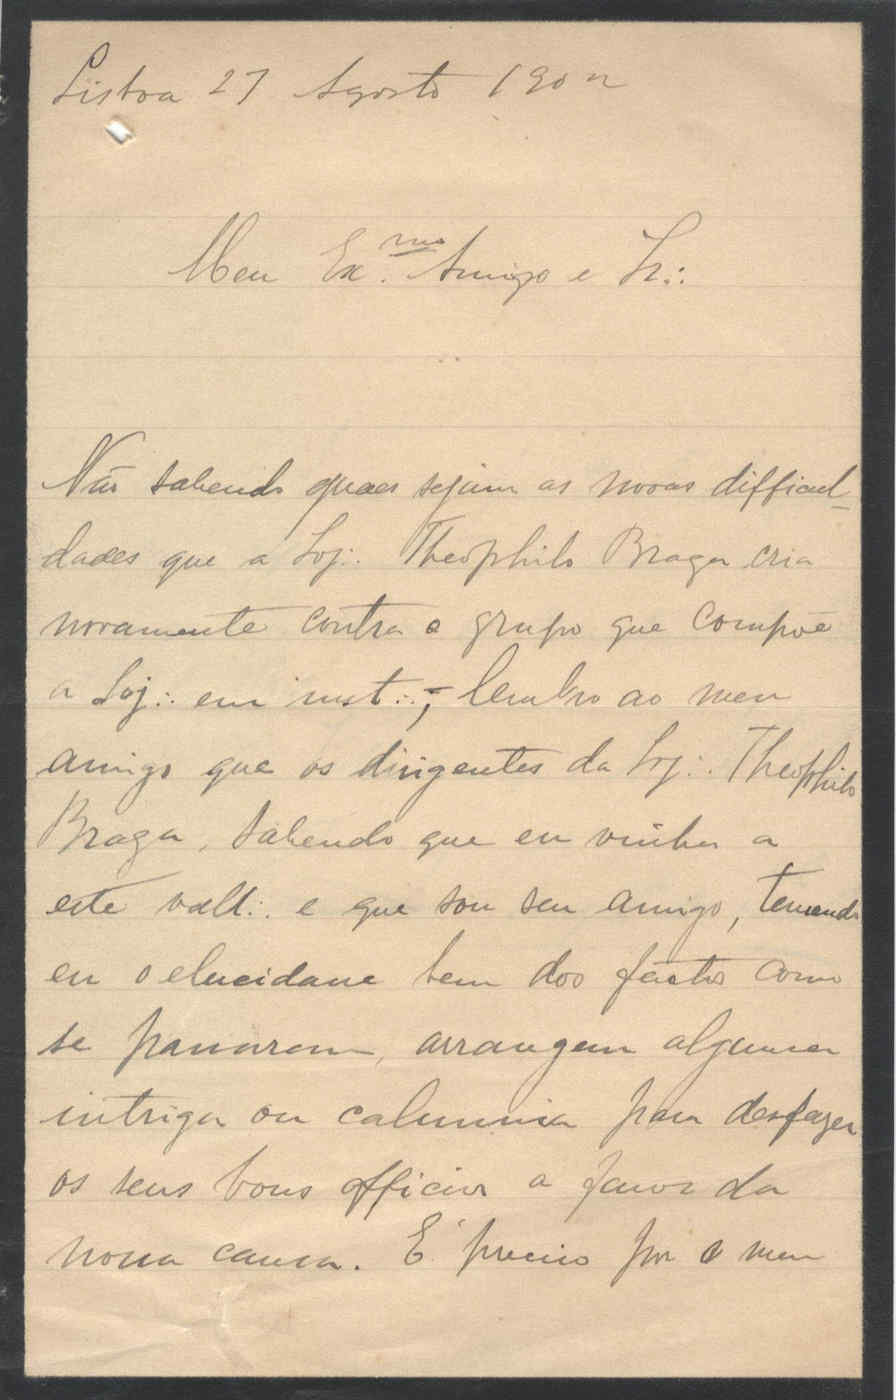 Lisboa 27 Agosto 1902
Meu Ex.mo Amigo e Ir∴
Não sabendo quaes sejam as novas difficul-
dades que a Loj∴ Theophilo Braga cria
novamente contra o grupo que compõe
a Loj∴ em inst∴, lembro ao meu
amigo que os dirigentes da Loj∴ Theophilo
Braga, sabendo que eu vinha a
este vall∴ e que sou seu amigo, temendo
eu o elucidasse bem dos factos como
se passaram, arrangem alguma
intriga ou calumnia para desfazer
os seus bons officios a favor da
nossa causa. É preciso por o meu